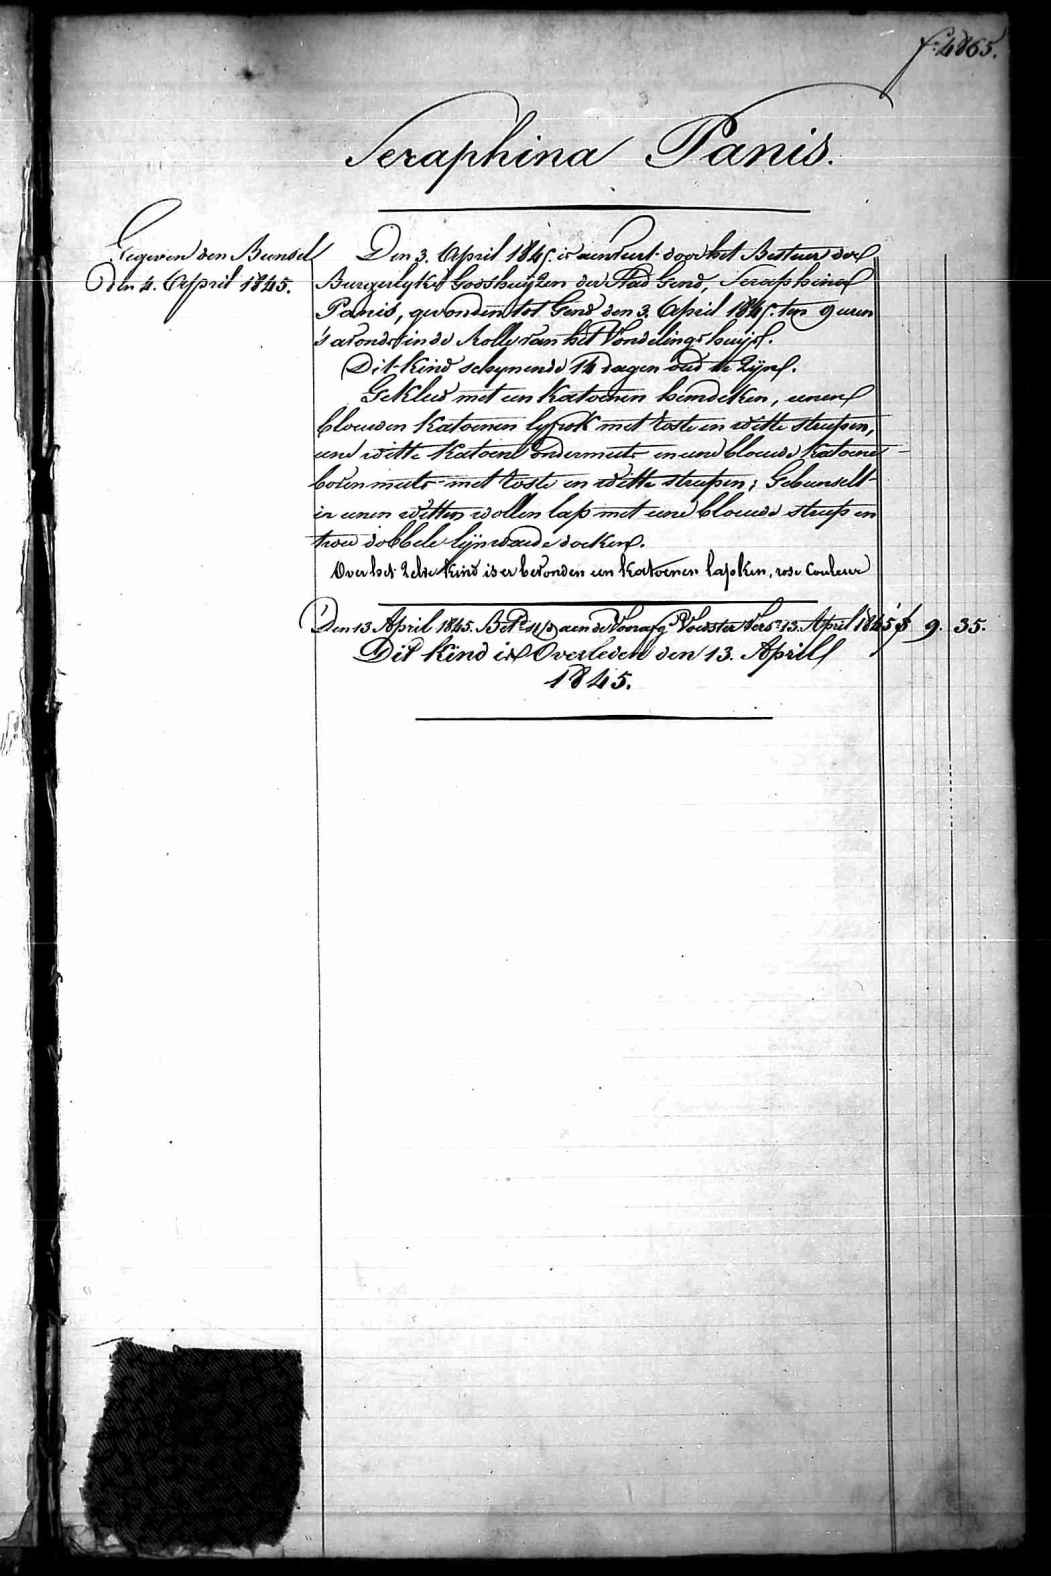 f: 4865.
Seraphina Panis.
Gegeven den Bunsel
den 4. April 1845.
Den 3. April 1845. is aenveert door het Bestuer der
Burgerlyke Godshuijzen der Stad Gend, Seraphina
Panis, gevonden tot Gend den 3. April 1845. ten 9 uren
's avonds in de Rolle van het Vondelings huijs.
Dit kind schynende 14 dagen oud te zijn.
Gekleed met een katoenen hemdeken, eenen
blouwen katoenen lyfrok met roste en witte streepen,
eene witte katoene ondermuts en eene blouwe katoene
bovenmuts met roste en witte streepen; Gebunselt
in eenen witten wollen lap met eene blouwe streep en
twee dobbele lijnwaede doeken.
Over het zelve kind is er bevonden een katoenen lapken, rose Couleur
Den 13 April 1845. Bet. aen de Voedster Vers. 13. April 1845 f 9. 35.
Dit kind is Overleden den 13. April
1845.